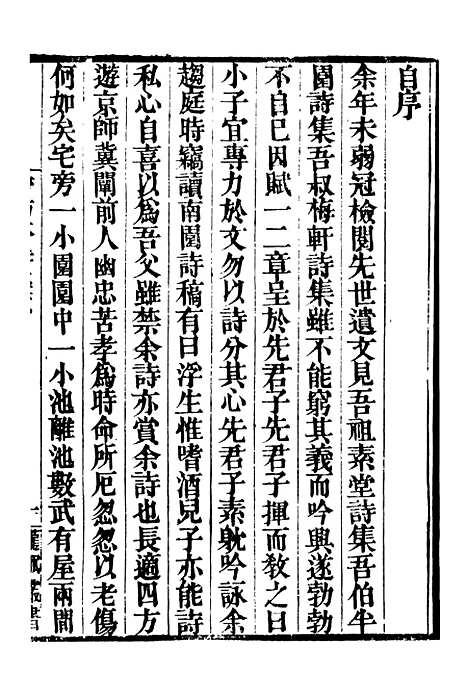 自序
余年未弱冠檢閱先世遺文見吾祖素堂詩集吾伯半
園詩集吾叔梅軒詩集雖不能窮其義而吟興遂勃勃
不自已因賦一二章呈於先君子先君子揮而敎之曰
小子宜專力於文勿以詩分其心先君子素躭吟詠余
趨庭時竊讀南園詩稿有曰浮生惟嗜酒兒子亦能詩
私心自喜以爲吾父雖禁余詩亦賞余詩也長適四方
遊京師冀闡前人幽忠苦孝爲時命所厄忽忽以老傷
何如矣宅旁一小園園中一小池離池數武有屋兩間